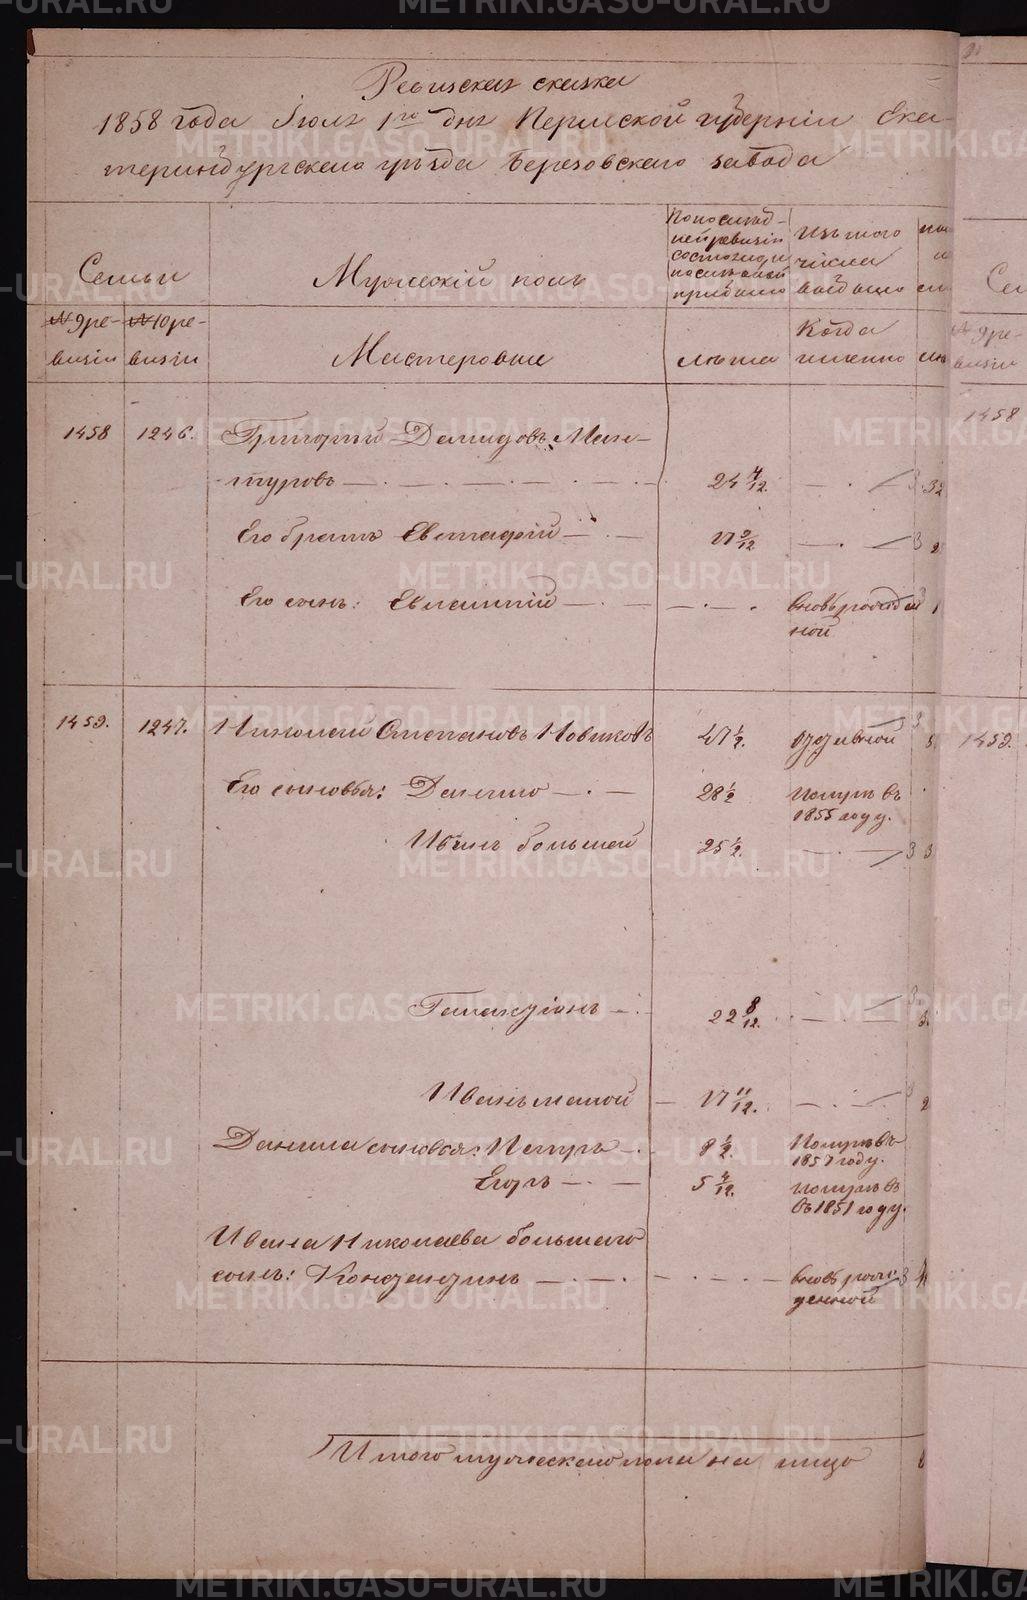 Ревизская сказка
1858 года Июля 1го дня Пермской губерніи Ека-
теринбургскаго уѣзда Березовскаго завода
Семьи
Мужескій полъ
По послѣд-
ней ревизіи
состояло и
послѣ оной
прибыло
Изъ того
числа
выбыло
№ 9 ре-
визіи
№ 10 ре-
визіи
Мастеровые
лѣта
Когда
именно
1458 1246. Григорій Демидовъ Ман-
туровъ 24 4/12.
Его братъ Евстафій 17 9/12
Его сынъ: Евлампій вновь рожден
ной
1459. 1247. Николай Степановъ Новиковъ 47 1/2. 1459.
Его сыновья: Данило 28 1/2 Померъ въ
1855 году.
Иванъ большей 25 1/2.
Галактіонъ 22 8/12.
Иванъ малой 17 11/12.
Данила сыновья: Петръ 8 1/2. Померъ въ
1857 году.
Егоръ 5 4/12. померъ въ
въ 1851 году.
Ивана Николаева большаго
сынъ: Констянтинъ вновь рож
денной
Итого мужескаго пола на лицо
№ 9 ре-
визіи
1458
METRIKI.GASO-URAL.RU